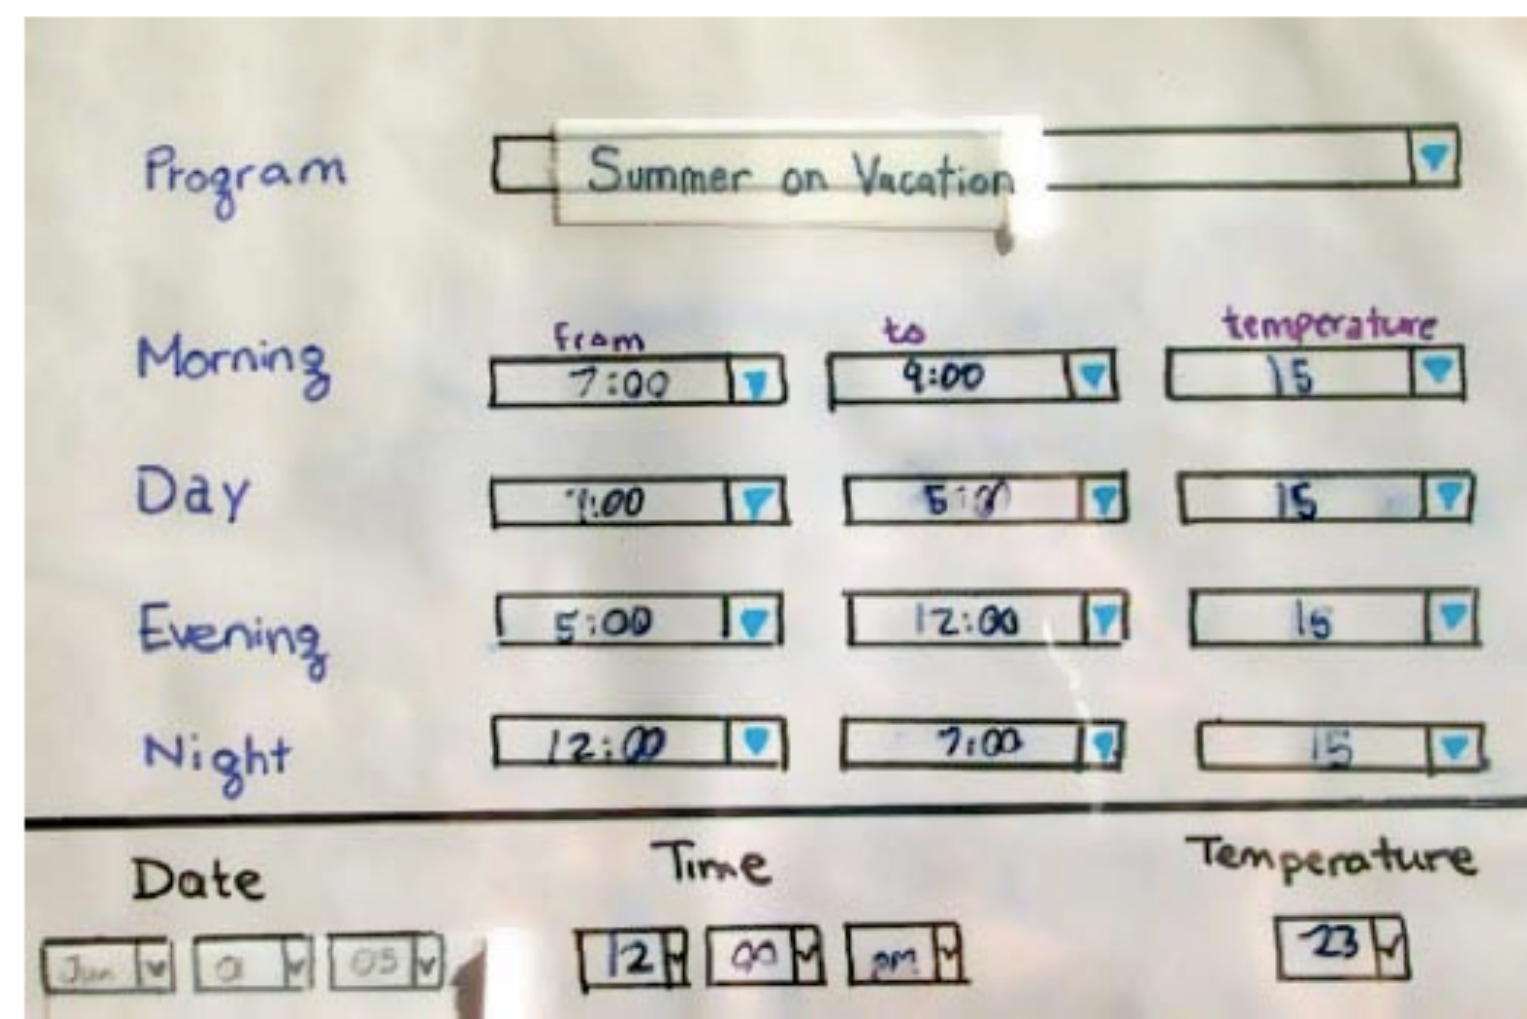 Program Summer on Vacation
from to temperature
Morning 7:00 9:00 15
Day :00 5:00 15
Evening 5:00 12:00 15
Night 12:00 7:00 15
Date Time Temperature
Jun 01 05 12 00 pm 23